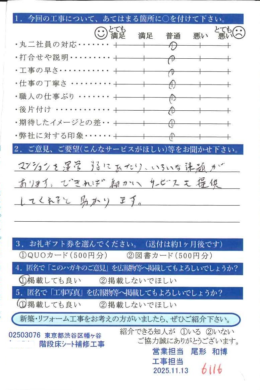 1．今回の工事について、あてはまる箇所に○を付けて下さい。
とても満足 満足 普通 悪い とても悪い
・丸二社員の対応
・打合せや説明
・工事の早さ
・仕事の丁寧さ
・職人の仕事ぶり
・後片付け
・期待したイメージとの差
・弊社に対する印象
2．ご意見、ご要望(こんなサービスがほしい)等をお聞かせ下さい。
マンションを運営するにあたり、いろいろな法規が
あります。できれば細かいサービスを提供
してくれると助かります。
3．お礼ギフト券を選んでください。（送付は約1ヶ月後です）
①QUOカード(500円分) ②図書カード(500円分)
4．匿名で「このハガキのご意見」を広報物等へ掲載してもよろしいでしょうか？
①掲載しても良い ②掲載してほしくない
5．匿名で「工事写真」を広報物等へ掲載してもよろしいでしょうか？
①掲載しても良い ②掲載してほしくない
新築・リフォーム工事をお考えの方がいましたら、ぜひご紹介下さい。
紹介できる知人が ①いる ②いない
02503076 東京都渋谷区幡ヶ谷
階段床シート補修工事
ご協力誠にありがとうございます。
営業担当 尾形 和博
工事担当
2025.11.13 6116